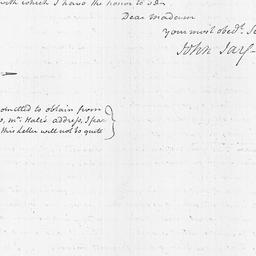 with which I have the honor to
Dear Madam
your most obedt. Se
John Sarg
omitted to obtain from
Mr. Hale's address, I fear
this Letter will not be quite